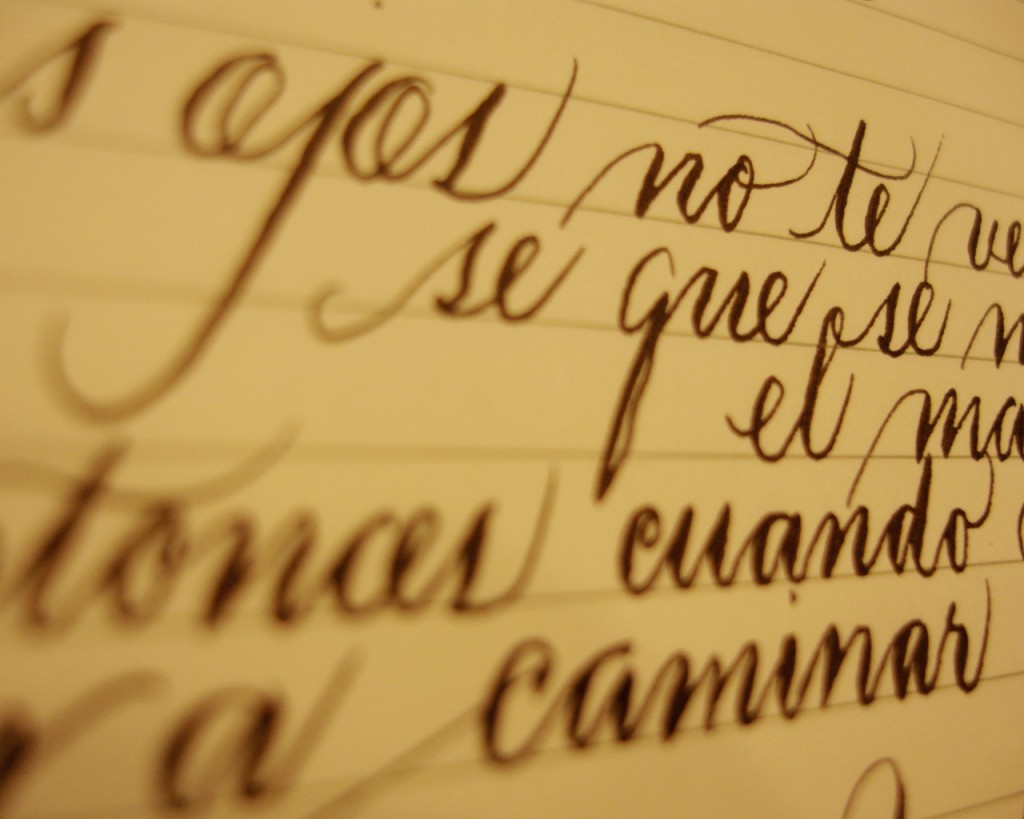 s ojos no te ve
se que se m
el ma
tonces cuando
a caminar